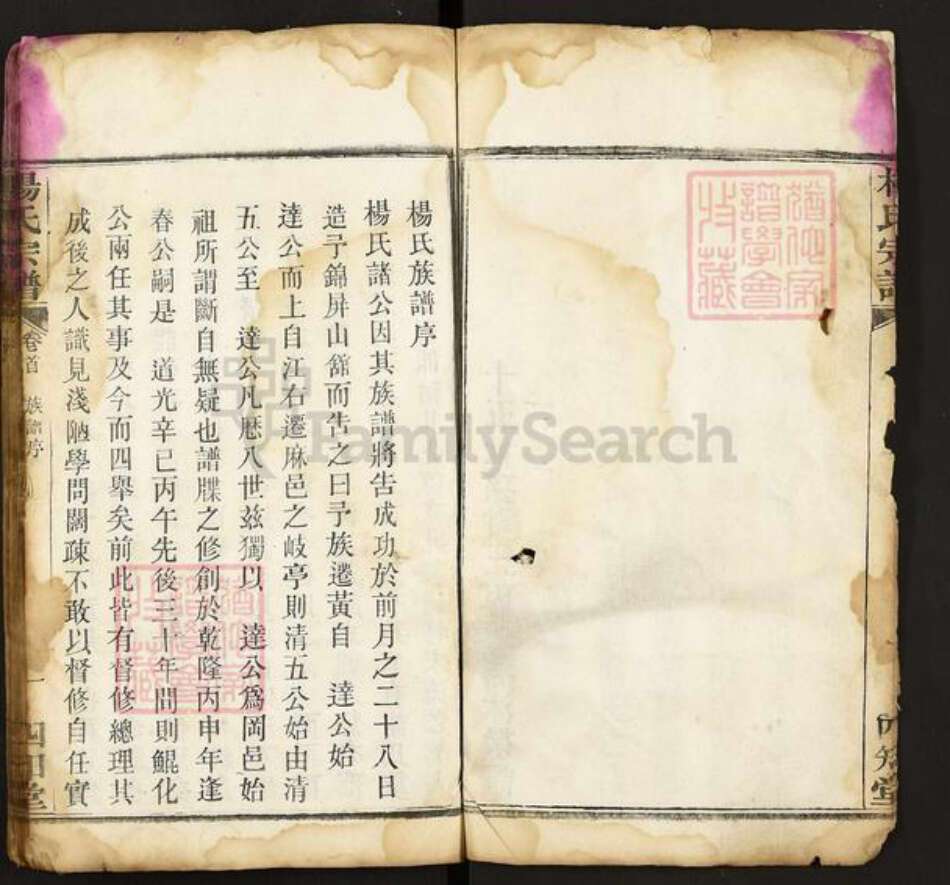 楊氏宗譜
四知堂
猶他家譜學會收藏
楊氏族譜序
楊氏諸公因其族譜將告成功於前月之二十八日
造予錦屏山館而告之曰予族遷黃自 達公始
達公而上自江右遷麻邑之岐亭則清五公始由清
五公至 達公凡歷八世茲獨以 達公爲岡邑始
祖所謂斷自無疑也譜牒之修創於乾隆丙申年逢
春公嗣是 道光辛巳丙午先後三十年間則鯤化
公兩任其事及今而四舉矣前此皆有督修總理其
成後之人識見淺陋學問闊疎不敢以督修自任實
楊氏宗譜
卷首 族譜序
一
四知堂
猶他家譜學會收藏
FamilySearch